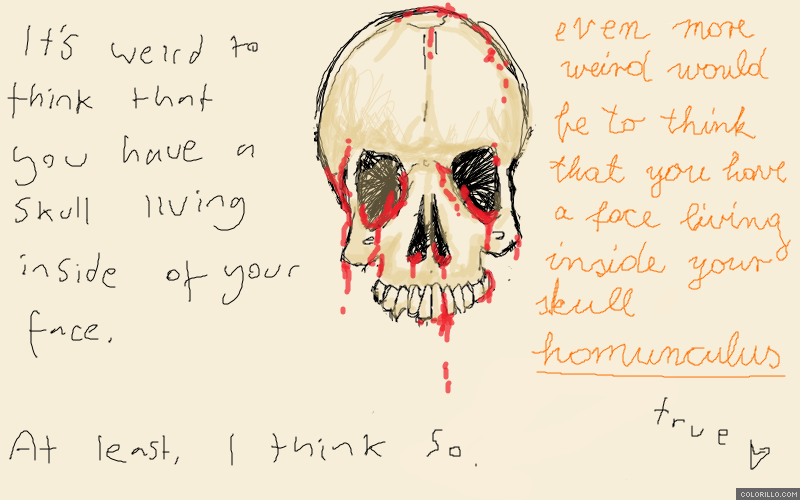 It's weird to
think that
you have a
skull living
inside of your
face.
At least, I think so.
even more
weird would
be to think
that you have
a face living
inside your
skull
homunculus
true
COLORILLO.COM